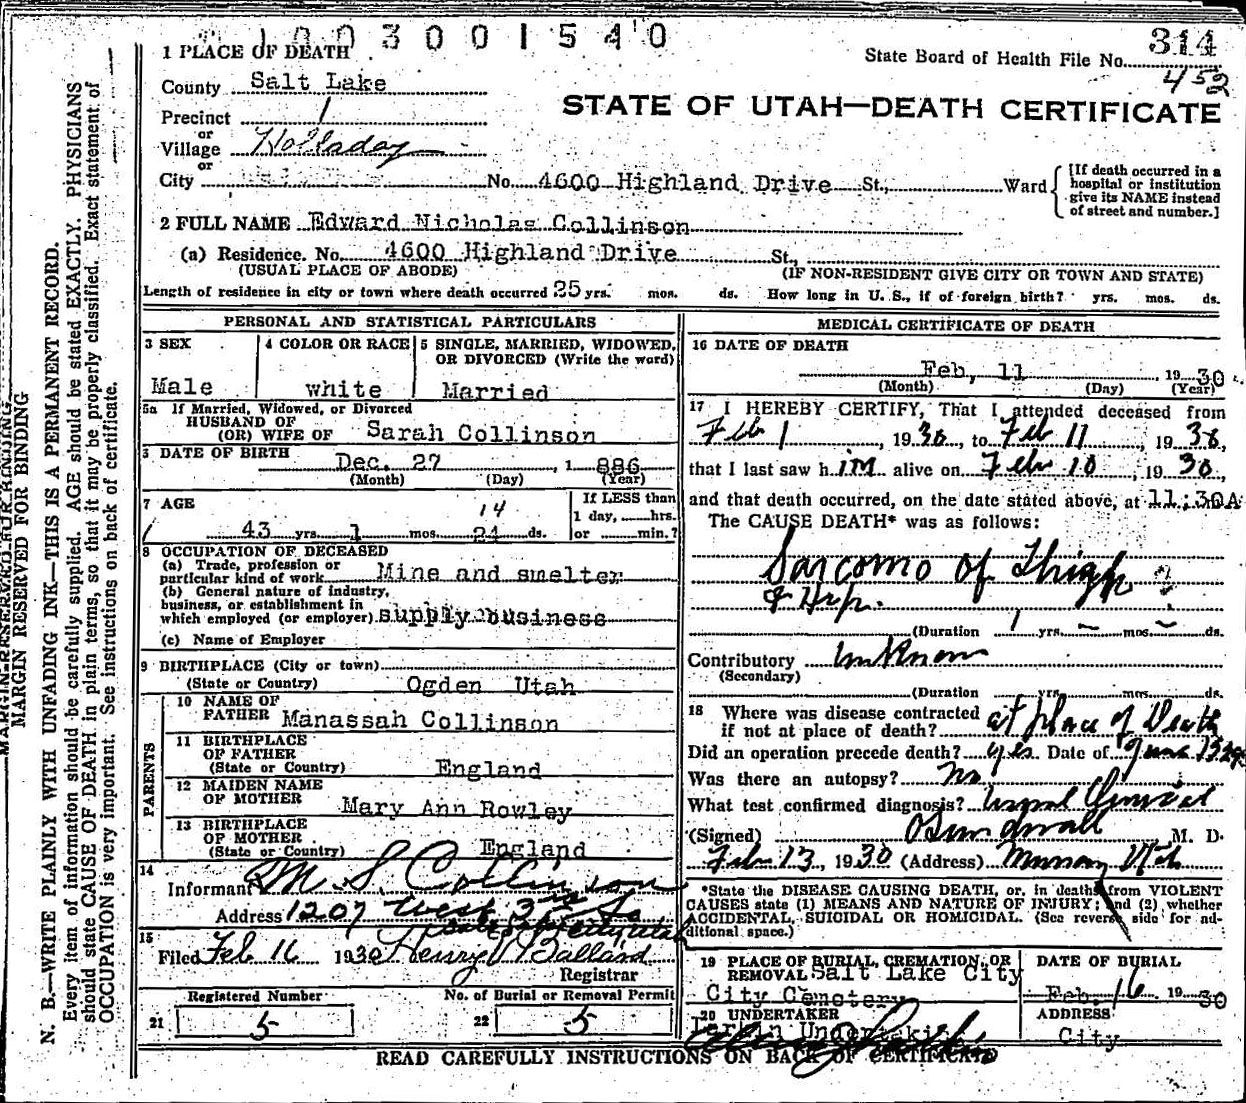 1003001540
1 PLACE OF DEATH
State Board of Health File No. 314
452
County Salt Lake
STATE OF UTAH—DEATH CERTIFICATE
Precinct 1
or
Village Holladay
or
City No. 4600 Highland Drive St., Ward
[If death occurred in a hospital or institution give its NAME instead of street and number.]
2 FULL NAME Edward Nicholas Collinson
(a) Residence. No. 4600 Highland Drive St.,
(USUAL PLACE OF ABODE) (IF NON-RESIDENT GIVE CITY OR TOWN AND STATE)
Length of residence in city or town where death occurred 25 yrs. mos. ds. How long in U. S., if of foreign birth? yrs. mos. ds.
PERSONAL AND STATISTICAL PARTICULARS
3 SEX
Male
4 COLOR OR RACE
white
5 SINGLE, MARRIED, WIDOWED,
OR DIVORCED (Write the word)
Married
5a If Married, Widowed, or Divorced
HUSBAND OF
(OR) WIFE OF Sarah Collinson
DATE OF BIRTH
Dec. 27, 1 886
(Month) (Day) (Year)
7 AGE
14
43 yrs. 1 mos. 24 ds.
If LESS than
1 day, hrs.
or min.?
8 OCCUPATION OF DECEASED
(a) Trade, profession or
particular kind of work Mine and smelter
(b) General nature of industry,
business, or establishment in
which employed (or employer) supply business
(c) Name of Employer
9 BIRTHPLACE (City or town)
(State or Country) Ogden Utah
PARENTS
10 NAME OF
FATHER Manassah Collinson
11 BIRTHPLACE
OF FATHER
(State or Country) England
12 MAIDEN NAME
OF MOTHER Mary Ann Rowley
13 BIRTHPLACE
OF MOTHER
(State or Country) England
14
Informant M. S. Collinson
Address 1207 West 3rd So
Salt Lake City Utah
15
Filed Feb. 16 1930 Henry Balland
Registrar
Registered Number
21 5
No. of Burial or Removal Permit
22 5
MEDICAL CERTIFICATE OF DEATH
16 DATE OF DEATH
Feb, 11 19 30
(Month) (Day) (Year)
17 I HEREBY CERTIFY, That I attended deceased from
Feb 1, 1930, to Feb 11, 1930,
that I last saw him alive on Feb 10, 1930,
and that death occurred, on the date stated above, at 11:30A
The CAUSE DEATH* was as follows:
Sarcomo of Thigh
& Hip.
(Duration 1 yrs. – mos. – ds.
Contributory unknown
(Secondary)
(Duration yrs. mos. ds.
18 Where was disease contracted
if not at place of death? at place of Death
Did an operation precede death? yes Date of June 1929
Was there an autopsy? No
What test confirmed diagnosis?
(Signed) M. D.
Feb 13, 1930 (Address) Murray Utah
*State the DISEASE CAUSING DEATH, or, in deaths from VIOLENT
CAUSES state (1) MEANS AND NATURE OF INJURY; and (2) whether
ACCIDENTAL, SUICIDAL OR HOMICIDAL. (See reverse side for ad-
ditional space.)
19 PLACE OF BURIAL, CREMATION, OR
REMOVAL Salt Lake City
City Cemetery
DATE OF BURIAL
Feb. 16 19 30
20 UNDERTAKER
Larkin Undertaking
ADDRESS
City
READ CAREFULLY INSTRUCTIONS ON BACK OF CERTIFICATE
MARGIN RESERVED FOR BINDING
MARGIN RESERVED FOR BINDING
N. B.—WRITE PLAINLY WITH UNFADING INK—THIS IS A PERMANENT RECORD.
Every item of information should be carefully supplied. AGE should be stated EXACTLY. PHYSICIANS
should state CAUSE OF DEATH in plain terms, so that it may be properly classified. Exact statement of
OCCUPATION is very important. See instructions on back of certificate.